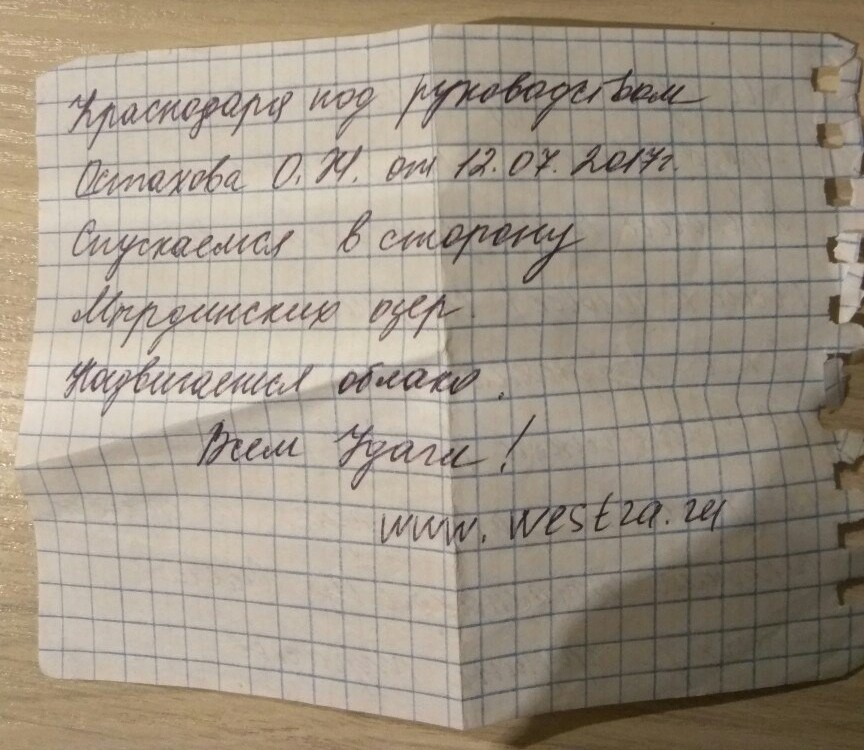 Краснодара под руководством
Остахова О.Н. от 12.07.2017г.
Спускаемся в сторону
Мырдинских озер.
Надвигается облако.
Всем Удачи!
www.westra.ru